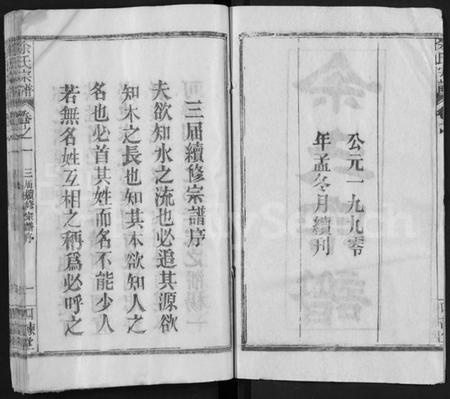 公元一九九零
年孟冬月續刊
三屆續修宗譜序
夫欲知水之流也必追其源欲
知木之長也知其本欲知人之
名也必首其姓而名不能少人
若無名姓互相之稱爲必呼之
余氏宗譜
卷之一
三屆續修宗譜序
一